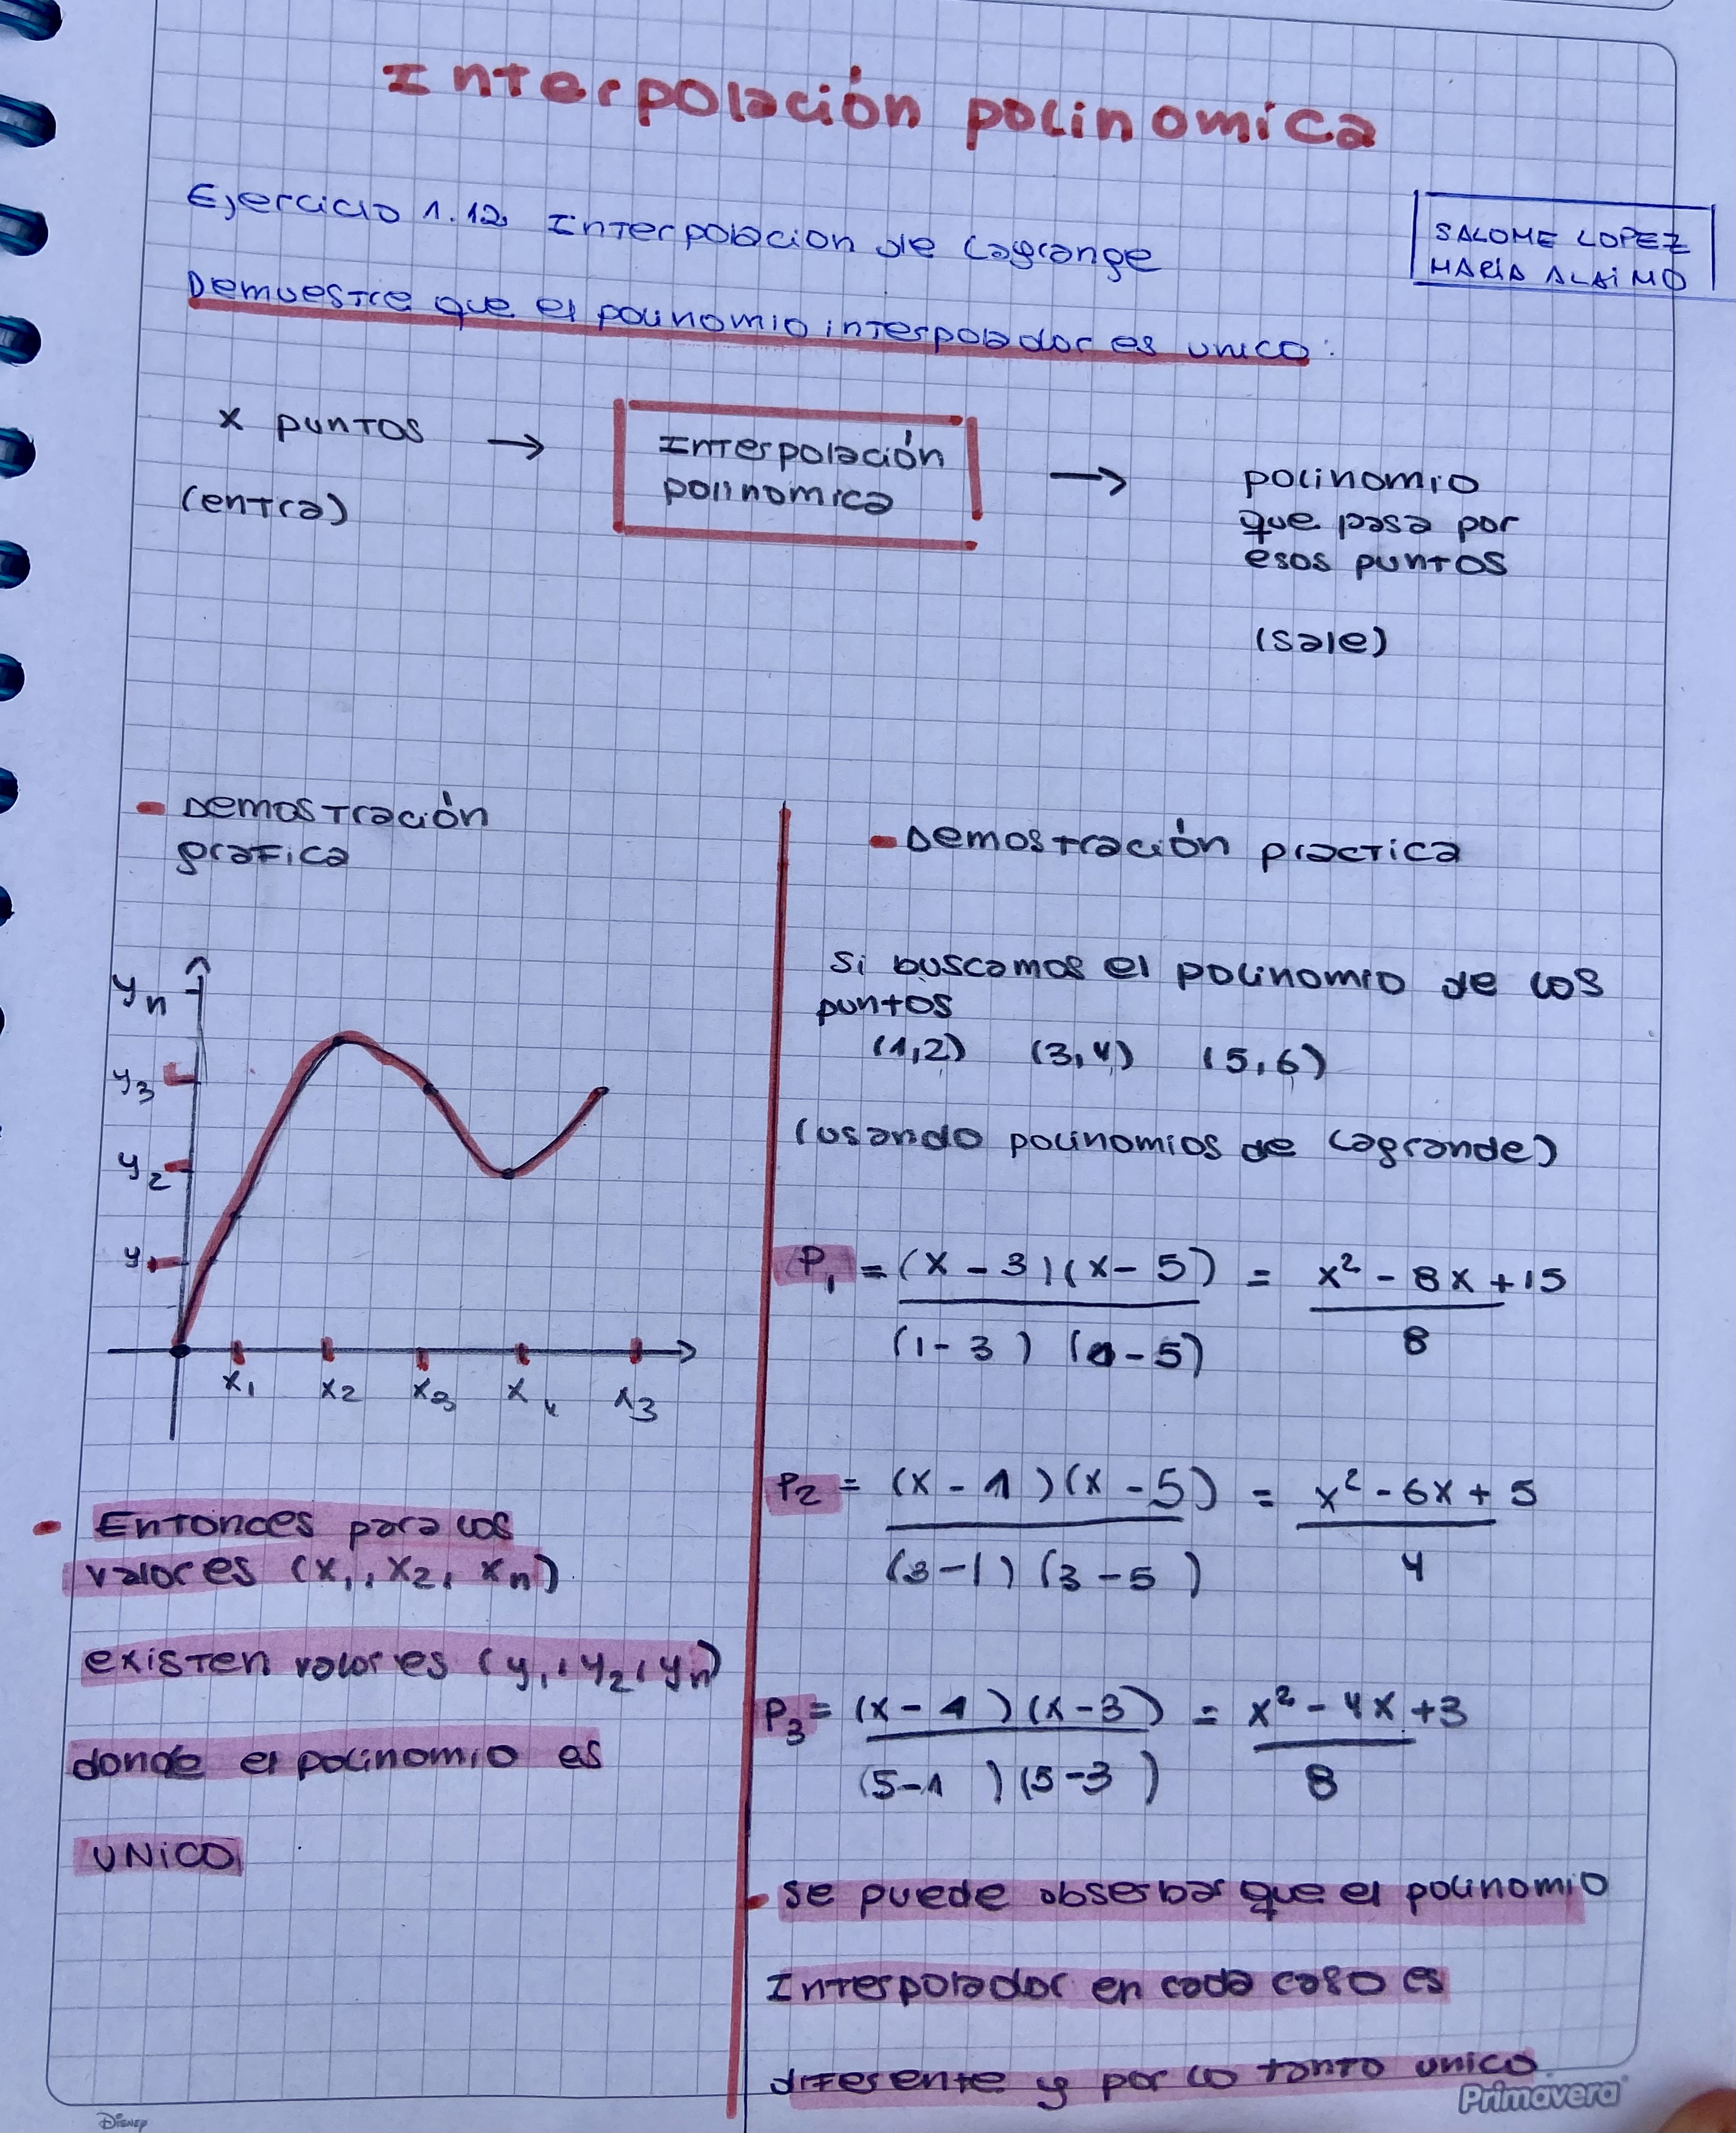 Interpolación polinomica
Ejercicio 1.12. Interpolacion de Lagrange
SALOME LOPEZ
MARÍA ALAIMO
Demuestre que el polinomio interpolador es unico:
x puntos →
(entra)
Interpolación
polinomica
→ polinomio
que pasa por
esos puntos
(sale)
- Demostración
grafica
yn
y3
y2
y
x1 x2 x3 x4 x3
- Entonces para los
valores (x1, x2, xn)
existen valores (y1, y2, yn)
donde el polinomio es
UNICO
- Demostración practica
Si buscamos el polinomio de los
puntos
(1,2) (3,4) (5,6)
(usando polinomios de Lagrande)
P1 = (x - 3)(x - 5) = x² - 8x + 15
(1 - 3) (1 - 5) 8
P2 = (x - 1)(x - 5) = x² - 6x + 5
(3 - 1) (3 - 5) 4
P3 = (x - 1)(x - 3) = x² - 4x + 3
(5 - 1) (5 - 3) 8
- se puede obserbar que el polinomio
Interpolador en cada caso es
diferente y por lo tanto unico
Primavera
Disney